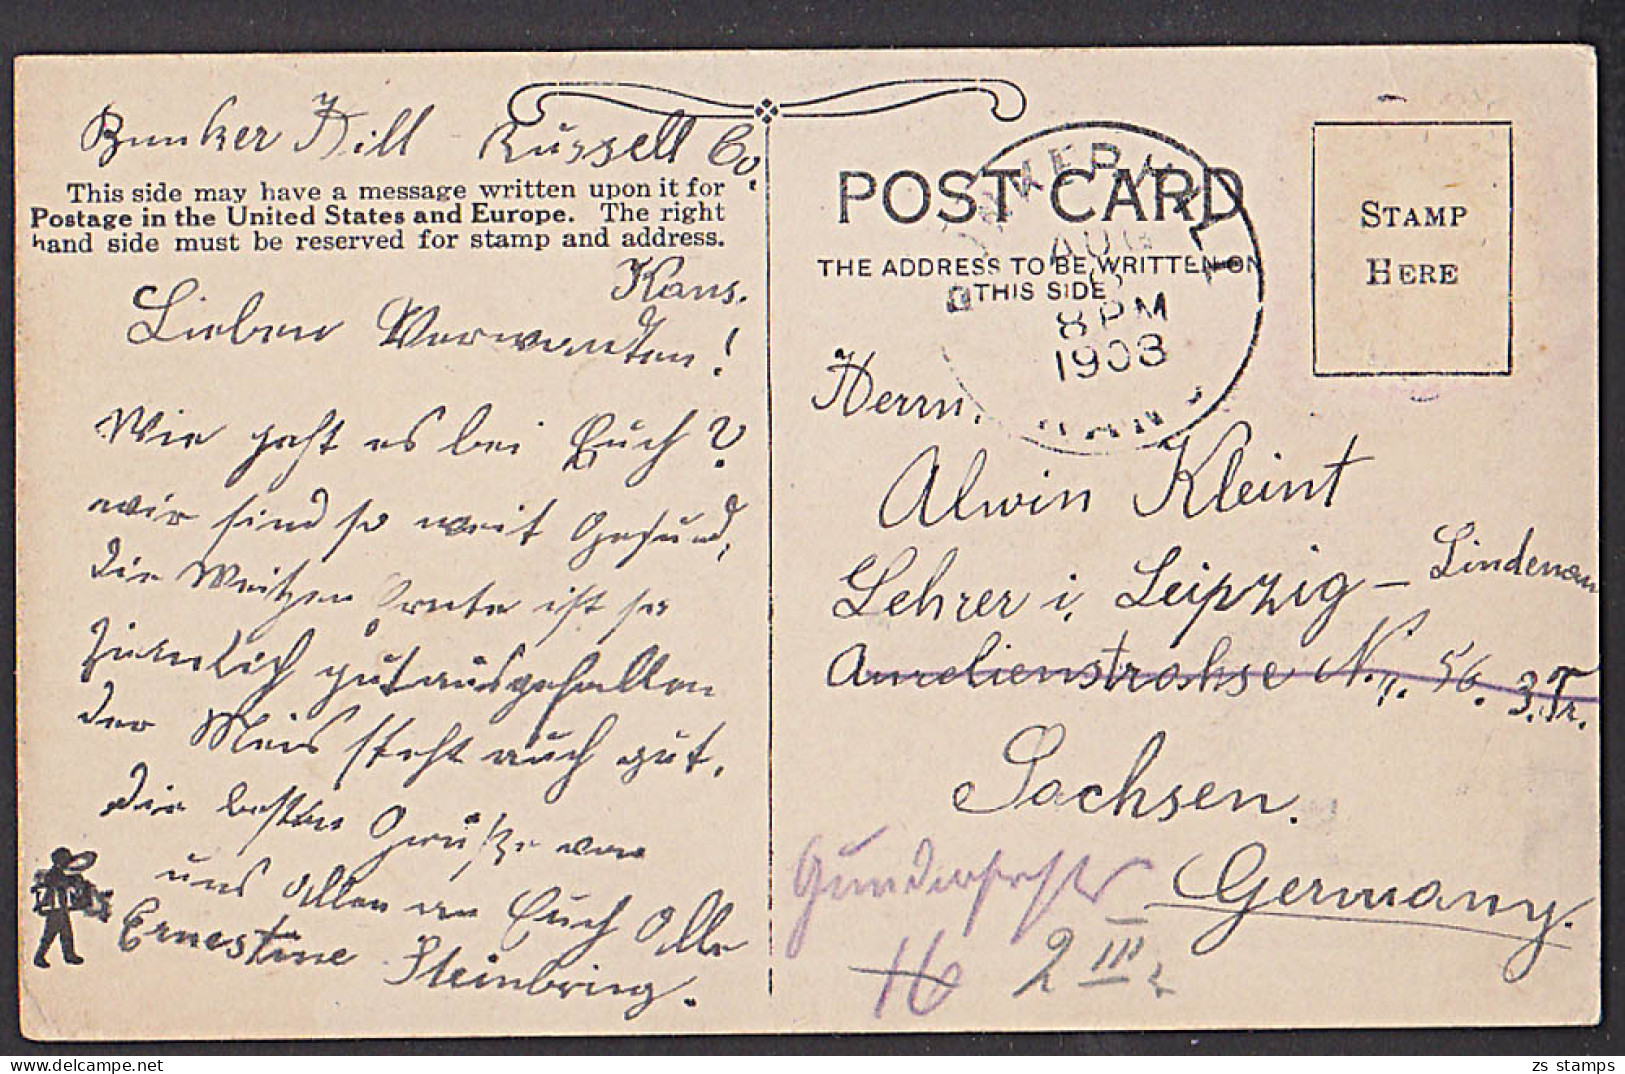 Bunker Hill Russell Co.
This side may have a message written upon it for
Postage in the United States and Europe. The right
hand side must be reserved for stamp and address.
Kans.
Lieben Verwandten!
Wie geht es bei Euch?
wir sind so weit Gesund,
die Weitzen Ernte ist so
ziemlich gut ausgefallen
der Meis steht auch gut.
die besten Grüße von
uns Allen an Euch Alle
Ernestine Steinbring.
POST CARD
THE ADDRESS TO BE WRITTEN ON
THIS SIDE
BUNKER HILL
AUG
8 PM
1908
KAN
STAMP
HERE
Herrn.
Alwin Kleint
Lehrer i. Leipzig - Lindenau
Aurelienstrahse N. 56. 3. Tr.
Sachsen.
Germany.
16 2 III
zs stamps